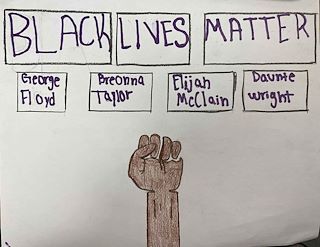 BLACK LIVES MATTER
George Breonna Elijah Daunte
Floyd Taylor McClain Wright